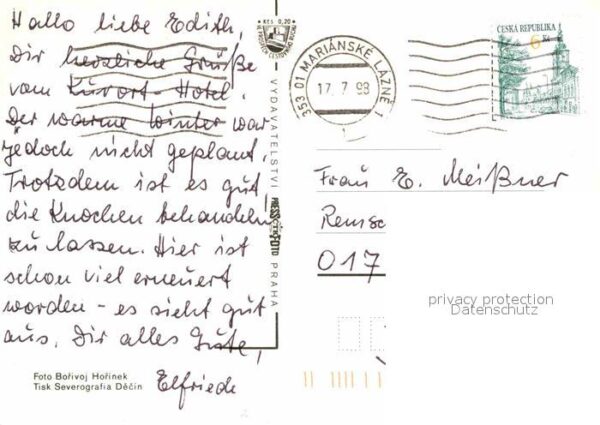 Hallo liebe Edith,
Dir herzliche Grüße
vom Kurort-Hotel.
Der warme Winter war
jedoch nicht geplant.
Trotzdem ist es gut,
die Knochen behandeln
zu lassen. Hier ist
schon viel erneuert
worden - es sieht gut
aus. Dir alles Gute,
Elfriede
Foto Bořivoj Hořínek
Tisk Severografia Děčín
Kčs 0,20
VYDAVATELSTVÍ
PRESSFOTO
PRAHA
353 01 MARIÁNSKÉ LÁZNĚ 1
17. 7. 98
ČESKÁ REPUBLIKA
6 Kč
Frau E. Meißner
Remsc
017
privacy protection
Datenschutz